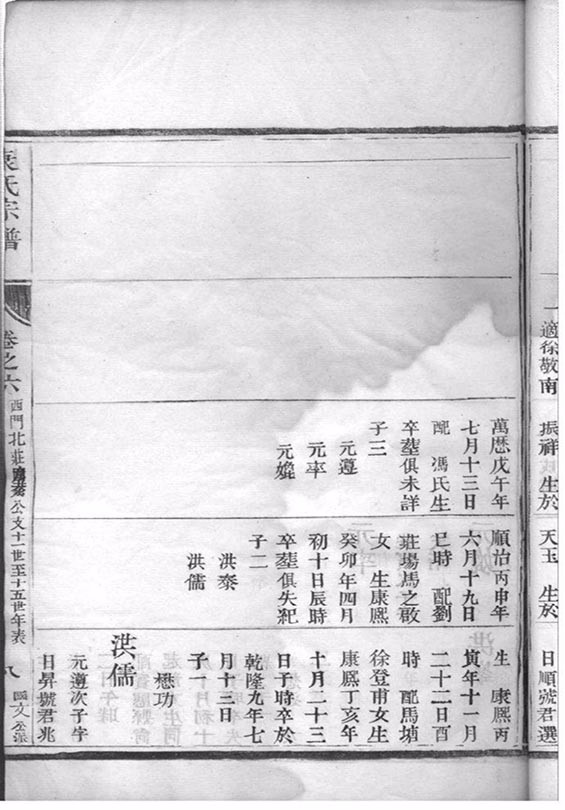 一適徐敬南
振祥 生於
天玉 生於
日順號君選
萬歷戊午年
七月十三日
配 馮氏生
卒塟俱未詳
子三
元遵
元率
元
順治丙申年
六月十九日
巳時 配劉
莊場馬之敬
女 生康熈
癸卯年四月
初十日辰時
卒塟俱失紀
子二
洪泰
洪儒
生 康熈丙
寅年十一月
二十二日酉
時 配馬塘
徐登甫女生
康熈丁亥年
十月二十三
日子時卒於
乾隆九年七
月十三日
子一
懋功
洪儒
元遵次子字
日昇號君兆
氏宗譜
卷之六
西門北莊 公支十一世至十五世年表
八